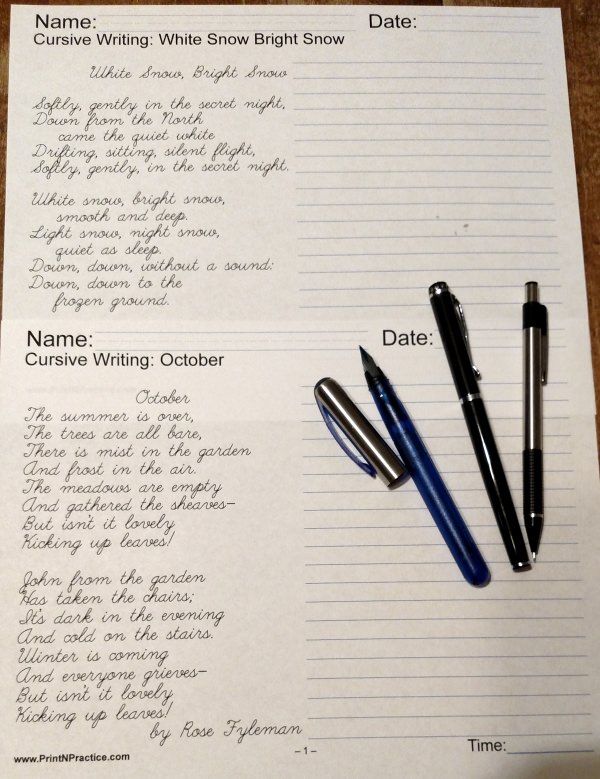 Name: Date:
Cursive Writing: White Snow Bright Snow
White Snow, Bright Snow
Softly, gently in the secret night,
Down from the North
came the quiet white
Drifting, sitting, silent flight,
Softly, gently, in the secret night.
White snow, bright snow,
smooth and deep.
Light snow, night snow,
quiet as sleep.
Down, down, without a sound:
Down, down to the
frozen ground.
Name: Date:
Cursive Writing: October
October
The summer is over,
The trees are all bare,
There is mist in the garden
And frost in the air.
The meadows are empty
And gathered the sheaves-
But isn't it lovely
Kicking up leaves!
John from the garden
Has taken the chairs;
It's dark in the evening
And cold on the stairs.
Winter is coming
And everyone grieves-
But isn't it lovely
Kicking up leaves!
by Rose Fyleman
www.PrintNPractice.com
-1-
Time: